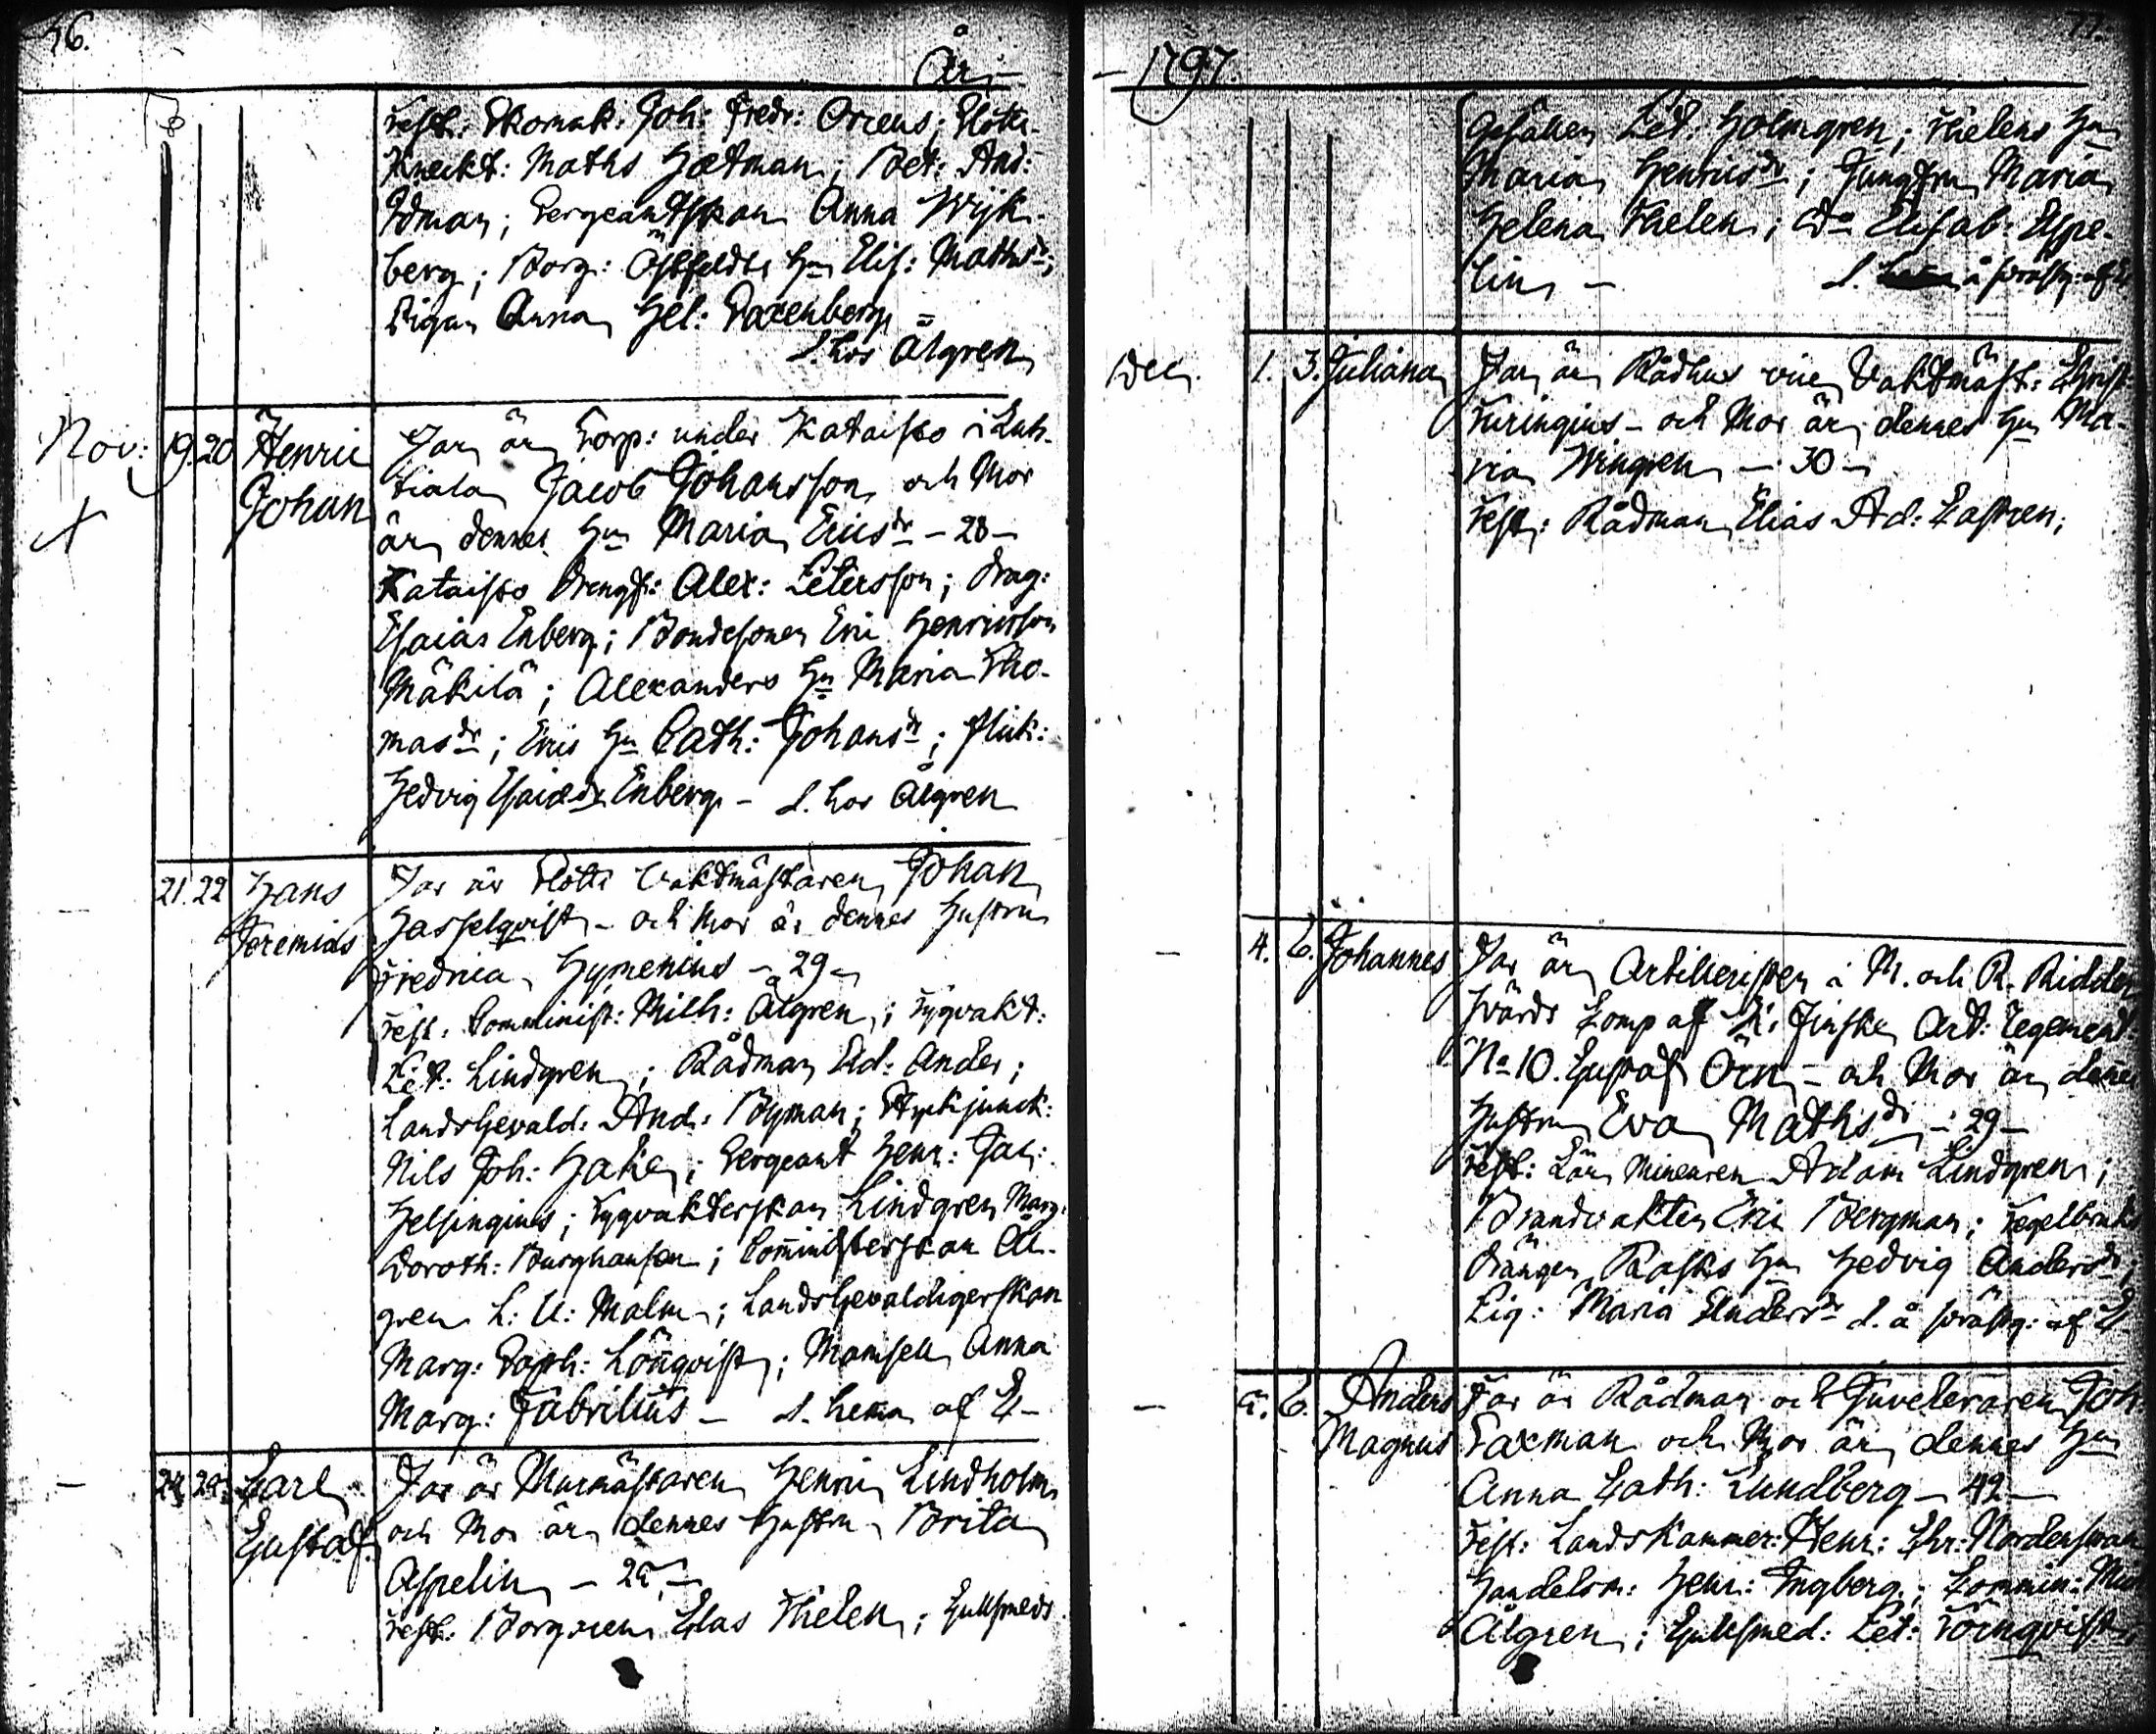 76.
År
Test: Skomak: Joh: Fredr: Oreus; Slotts
Kneckt: Maths Hætman; Bet: And:
Idman; Sergeantskan Anna Wijk-
berg; Borg: Östfeldts Hu Elis: Mathsdr;
Pigan Anna Hel: Saxenberg =
d. hos Ålgren
Nov: 19. 20 Henric Far är Torp: under Kataisto i Luh-
Johan tiala Jacob Johansson och Mor
är dennes Hu Maria Ericsdr - 28 -
Kataisto Drengf: Alex: Petersson; Drag:
Esaias Enberg; Bondesonen Eric Henricsson
Mäkilä; Alexanders Hu Maria Tho-
masdr; Erics Hu Cath: Johansdr; flick:
Hedvig Esaiædr Enberg - d. hos Ålgren
21. 22 Hans Far är Slotts Vaktmästaren Johan
Jeremias Hasselqvist - och Mor är dennes Hustru
Fredrica Hymenius - 29 -
Test: Comminist: Mich: Ålgren; Tygvakt:
Pet: Lindgren; Rådman Ad: Ander;
Landsgevald: And: Byman; Styckjunck:
Nils Joh: Hake; Sergeant Henr: Jac:
Helsingius; Tygvakterskan Lindgren Marg:
Doroth: Burghausen; Comministerskan Ål-
gren L: U: Malm; Landsgevaldigerskan
Marg: Soph: Lönqvist; Mamsell Anna
Marg: Fabritius - d. hema af E -
24. 25. Carl Far är Murmästaren Henric Lindholm
Gustaf. och Mor är dennes Hustru Brita
Aspelin - 25 -
Test: Borgaren Clas Thelen; Gullsmeds
77.
- 1797.
Gesällen Pet: Holmgren; Thelens Hu
Maria Henricsdr; Jungfru Maria
Helena Thelen; Do Elisab: Aspe-
lin - d. å prästg: af E
Dec. 1. 3. Juliana Far är Rådhus vice Vaktmäst: Christ
Turingius - och Mor är dennes Hu Ma-
ria Wingren - 30 -
Test: Rådman Elias Ad: Castren;
4. 6. Johannes Far är Artilleristen i M. och R. Ridder
svärds Comp af K. Finska Art: Regement
No 10. Gustaf Örn - och Mor är dennes
Hustru Eva Mathsdr - 29 -
Test: Mineuren Adam Lindgren;
Brandvakten Eric Bergman; Tegelbruks
Drängen Rasks Hu Hedvig Andersdr;
Pig: Maria Andersdr d. å prästg: af E
5. 6. Anders Far är Rådman och Juveleraren Joh
Magnus Saxman och Mor är dennes Hu
Anna Cath: Lundberg - 42 -
Test: Landskammer: Henr: Chr: Nordenswan
Handelsm: Henr: Ingberg; Commin: Mich
Ålgren; Gullsmed: Pet: Törnqvist;